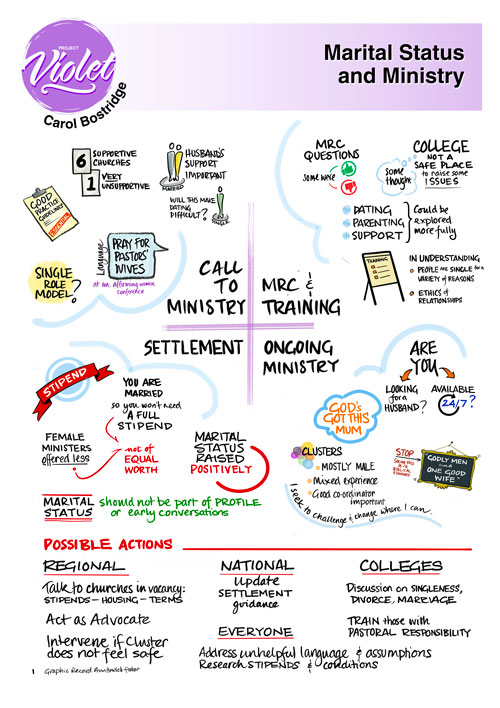 PROJECT
Violet
Carol Bostridge
Marital Status
and Ministry
6 SUPPORTIVE
CHURCHES
1 VERY
UNSUPPORTIVE
HUSBAND'S
SUPPORT
IMPORTANT
MARRIED
WILL THIS MAKE
DATING
DIFFICULT?
GOOD
PRACTICE
GUIDELINES
SINGLE
ROLE
MODEL?
Language
PRAY FOR
PASTORS'
WIVES
at an affirming women
conference
CALL
TO
MINISTRY
MRC
QUESTIONS
some were
COLLEGE
NOT A
SAFE PLACE
to raise some
ISSUES
some
thought
DATING
PARENTING
SUPPORT
could be
explored
more fully
TRAINING
IN UNDERSTANDING
PEOPLE ARE SINGLE for a
VARIETY OF REASONS
ETHICS of
RELATIONSHIPS
MRC &
TRAINING
SETTLEMENT
STIPEND
YOU ARE
MARRIED
so you won't need
A FULL
STIPEND
FEMALE
MINISTERS
offered less
not of
EQUAL
WORTH
MARITAL
STATUS
RAISED
POSITIVELY
MARITAL
STATUS
should not be part of PROFILE
or early conversations
ONGOING
MINISTRY
ARE
YOU
LOOKING
for a
HUSBAND?
AVAILABLE
24/7?
GOD'S
GOT THIS
MUM
CLUSTERS
MOSTLY MALE
Mixed experience
Good co-ordinator
important
I seek to challenge & change where I can.
STOP
"GODLY MEN
and
ONE GOOD
WIFE"
POSSIBLE ACTIONS
REGIONAL
Talk to churches in vacancy:
STIPENDS - HOUSING - TERMS
Act as Advocate
Intervene if Cluster
does not feel safe
NATIONAL
Update
SETTLEMENT
guidance
EVERYONE
Address unhelpful language & assumptions
Research STIPENDS & conditions
COLLEGES
Discussion on SINGLENESS,
DIVORCE, MARRIAGE
TRAIN those with
PASTORAL RESPONSIBILITY
1 Graphic Record